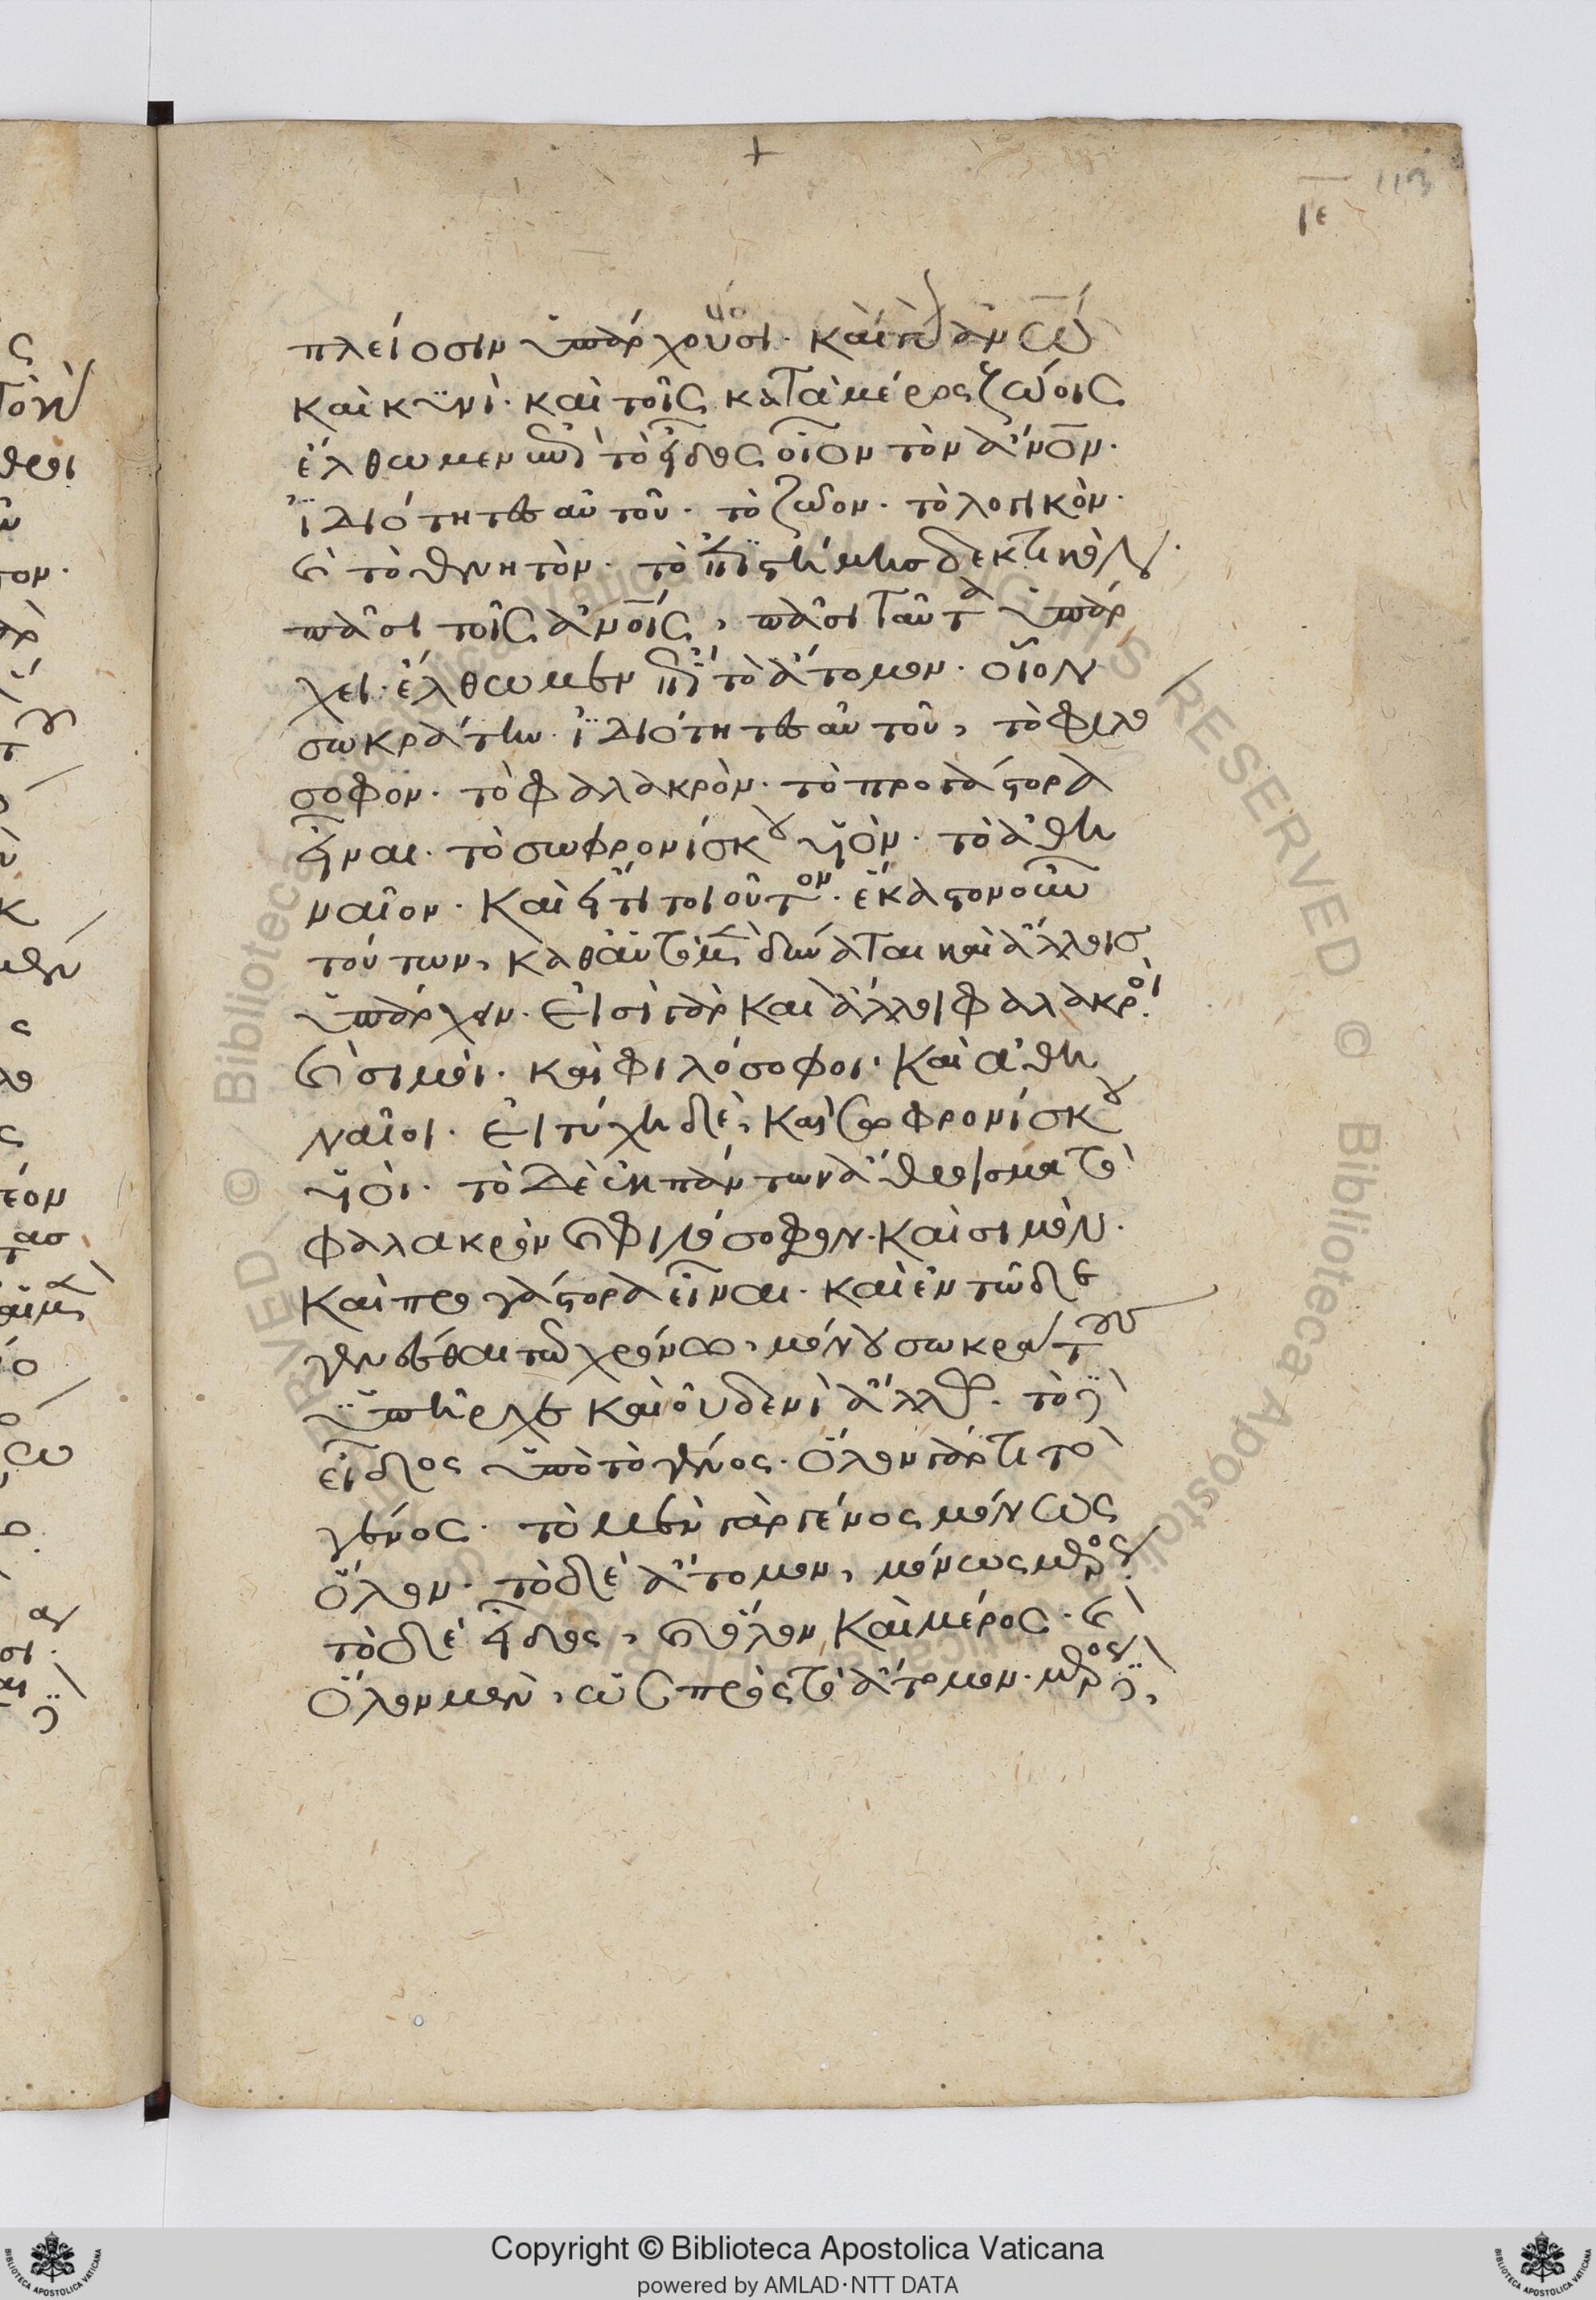 +
113
ιε
πλείοσιν ὑπάρχουσι· καὶ ἵππω ἀνω
καὶ κυνὶ· καὶ τοῖς κατὰ μέρος ζώοις
ἔλθωμεν ἐπὶ τὸ εἶδος οἷον τὸν ἄνον·
ἰδιότητες αὐτοῦ· τὸ ζῶον· τὸ λογικὸν·
καὶ τὸ θνητὸν· τὸ ἐπιστήμης δεκτικὸν·
πᾶσι τοῖς ἀνοις, πᾶσι ταῦτα ὑπάρ
χει· ἔλθωμεν ἐπὶ τὸ ἄτομον· οἷον
σωκράτην· ἰδιότητες αὐτοῦ, τὸ φιλο
σοφον· τὸ φαλακρὸν· τὸ προγάστορα
εἶναι· τὸ σωφρονίσκου υἱὸν· τὸ ἀθη
ναῖον· καὶ εἴ τι τοιοῦτον· ἕκαστον οὖν
τούτων, καθ' αὑτὸ μὲν δύναται καὶ ἄλλοις
ὑπάρχειν· εἰσὶ γὰρ καὶ ἄλλοι φαλακροὶ·
καὶ σιμοὶ· καὶ φιλόσοφοι· καὶ ἀθη
ναῖοι· εἰ τύχη δὲ, καὶ σωφρονίσκου
υἱοὶ· τὸ δὲ ἐκ πάντων ἄθροισμα τὸ
φαλακρὸν καὶ φιλόσοφον· καὶ σιμὸν·
καὶ προγάστορα εἶναι· καὶ ἐν τῶδε
γενέσθαι τῶ χρόνω, μόνου σωκράτους
ὑπῆρχε καὶ οὐδενὶ ἄλλω· τὸ δὲ
εἶδος ὑπὸ τὸ γένος· ὅλον γάρ τι τὸ
γένος· τὸ μὲν γὰρ γένος μόνως
ὅλον· τὸ δὲ ἄτομον, μόνως μέρος·
τὸ δὲ εἶδος, καὶ ὅλον καὶ μέρος· καὶ
ὅλον μὲν, ὡς πρὸς τὸ ἄτομον· μέρος δὲ,
Copyright © Biblioteca Apostolica Vaticana
powered by AMLAD·NTT DATA